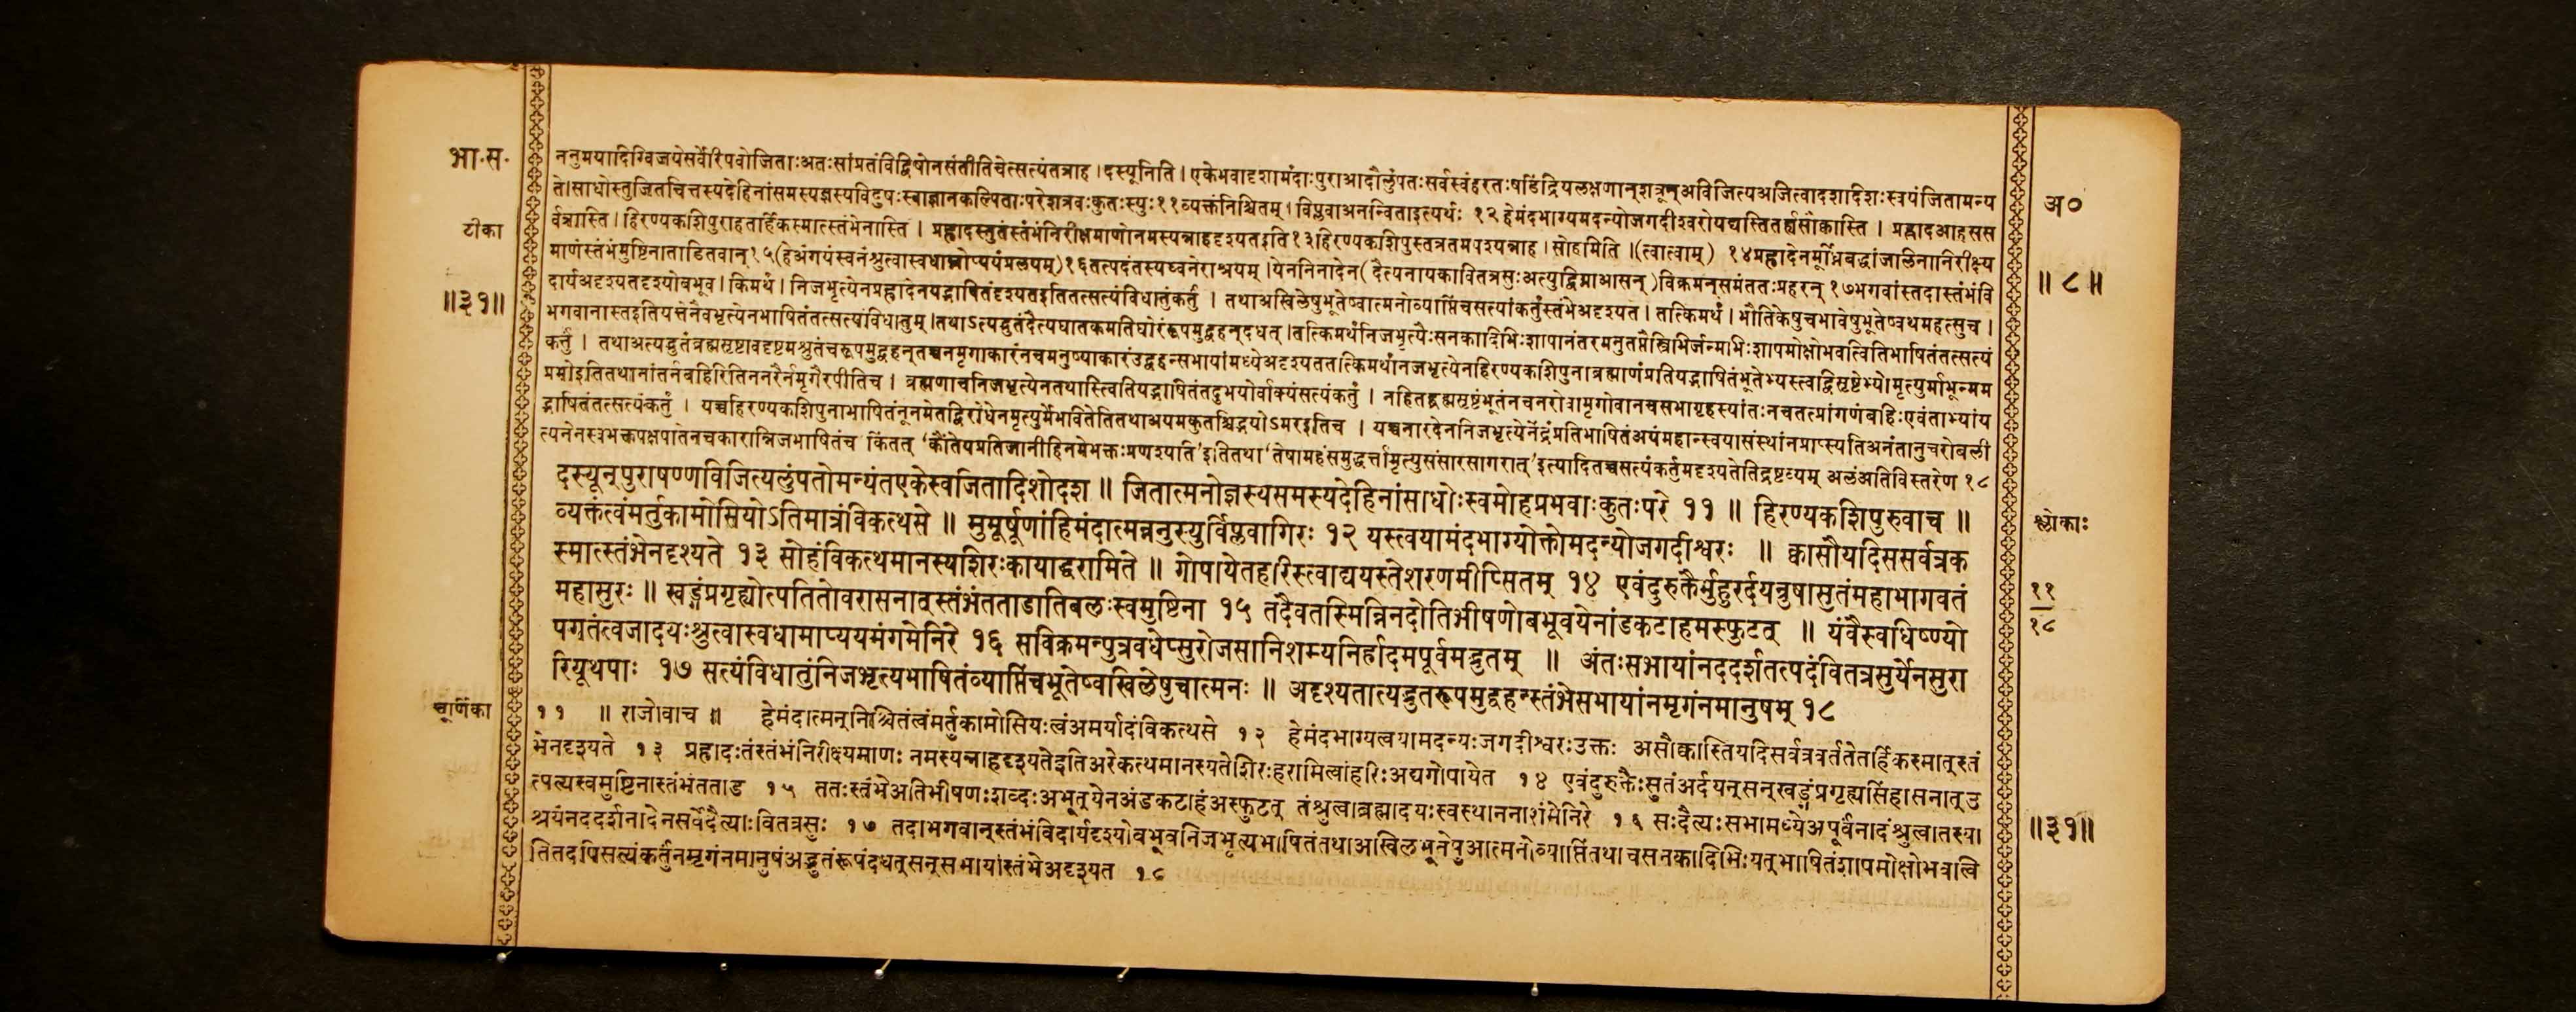 भा.स.
ननुमयादिग्विजयेसर्वेरिपवोजिताःअतःसांप्रतंविद्विषोनसंतीतिचेत्सत्यंतत्राह । दस्यूनिति । एकेभवादृशामंदाःपुराआदौलुंपतःसर्वस्वंहरतःषडिंद्रियलक्षणान्शत्रून्अविजित्यअजित्वादशदिशःस्वयंजितामन्य
ते।साधोस्तुजितचित्तस्यदेहिनांसमस्यज्ञस्यविदुषःस्वाज्ञानकल्पिताःपरेशत्रवःकुतःस्युः११व्यक्तंनिश्चितम् । विप्लवाअनन्विताइत्यर्थः १२ हेमंदभाग्यमदन्योजगदीश्वरोयद्यस्तितर्ह्यसौक्वास्ति । प्रह्लादआहसस
अ०
टीका
र्वत्रास्ति । हिरण्यकशिपुराहतर्हिकस्मात्स्तंभेनास्ति । प्रह्लादस्तुतंस्तंभंनिरीक्षमाणोनमस्यन्नाहदृश्यतइति१३हिरण्यकशिपुस्तत्रतमपश्यन्नाह । सोहमिति ।(त्वात्वाम्) १४प्रह्लादेनमूर्ध्निबद्धांजलिनानिरीक्ष्य
माणंस्तंभंमुष्टिनाताडितवान्१५(हेअंगयंस्वनंश्रुत्वास्वधाम्नोप्ययंप्रलयम्)१६तत्पदंतस्यघ्वनेराश्रयम् ।येननिनादेन(दैत्यनायकावितत्रसुःअत्युद्विग्नाआसन्)विक्रमन्समंततःप्रहरन् १७भगवांस्तदास्तंभंवि
॥ ८ ॥
॥३१॥
दार्यअदृश्यतदृश्योबभूव । किमर्थं । निजभृत्येनप्रह्लादेनयद्भाषितंदृश्यतइतितत्सत्यंविधातुंकर्तुं । तथाअखिलेषुभूतेष्वात्मनोव्याप्तिंचसत्यांकर्तुंस्तंभेअदृश्यत । तत्किमर्थं । भौतिकेषुचभावेषुभूतेष्वथमहत्सुच ।
भगवानास्तइतियत्तेनैवभृत्येनभाषितंतत्सत्यंविधातुम् ।तथाऽत्यद्भुतंदैत्यघातकमतिघोरंरूपमुद्वहन्दधत् ।तत्किमर्थंनिजभृत्यैःसनकादिभिःशापानंतरमनुतप्तैस्त्रिभिर्जन्मभिःशापमोक्षोभवत्वितिभाषितंतत्सत्यं
कर्तुं । तथाअत्यद्भुतंब्रह्मसृष्टावदृष्टमश्रुतंचरूपमुद्वहन्तच्चनमृगाकारंनचमनुष्याकारंउद्वहन्सभायांमध्येअदृश्यततत्किमर्थंनिजभृत्येनहिरण्यकशिपुनाब्रह्माणंप्रतियद्भाषितंभूतेभ्यस्त्वद्विसृष्टेभ्योमृत्युर्माभून्मम
प्रभोइतितथानांतर्नबहिरितिननरैर्नमृगैरपीतिच । ब्रह्मणाचनिजभृत्येनतथास्त्वितियद्भाषितंतदुभयोर्वाक्यंसत्यंकर्तुं । नहितद्ब्रह्मसृष्टंभूतंनचनरोनमृगोवानचसभागृहस्यांतःनचतत्प्रांगणंबहिःएवंताभ्यांय
द्भाषितंतत्सत्यंकर्तुं । यच्चहिरण्यकशिपुनाभाषितंनूनमेतद्विरोधेनमृत्युर्मेभवितेतितथाअयमकुतश्चिद्भयोऽमरइतिच । यच्चनारदेननिजभृत्येनेंद्रंप्रतिभाषितंअयंमहान्स्वयासंस्थांनप्राप्स्यतिअनंतानुचरोबली
त्यनेनस्वभक्तपक्षपातेनचकारान्निजभाषितंच किंतत् ‘कौंतेयप्रतिजानीहिनमेभक्तःप्रणश्यति’इतितथा‘तेषामहंसमुद्धर्त्तामृत्युसंसारसागरात्’इत्यादितच्चसत्यंकर्तुमदृश्यतेतिद्रष्टव्यम् अलंअतिविस्तरेण १८
दस्यून्पुराषण्णविजित्यलुंपतोमन्यंतएकेस्वजितादिशोदश ॥ जितात्मनोज्ञस्यसमस्यदेहिनांसाधोःस्वमोहप्रभवाःकुतःपरे ११ ॥ हिरण्यकशिपुरुवाच ॥
व्यक्तंत्वंमर्तुकामोसियोऽतिमात्रंविकत्थसे ॥ मुमूर्षूणांहिमंदात्मन्ननुस्युर्विप्लवागिरः १२ यस्त्वयामंदभाग्योक्तोमदन्योजगदीश्वरः ॥ क्वासौयदिससर्वत्रक
श्लोकाः
स्मात्स्तंभेनदृश्यते १३ सोहंविकत्थमानस्यशिरःकायाद्धरामिते ॥ गोपायेतहरिस्त्वाद्ययस्तेशरणमीप्सितम् १४ एवंदुरुक्तैर्मुहुरर्दयन्रुषासुतंमहाभागवतं
महासुरः ॥ खड्गंप्रगृह्योत्पतितोवरासनात्स्तंभंतताडातिबलःस्वमुष्टिना १५ तदैवतस्मिन्निनदोतिभीषणोबभूवयेनांडकटाहमस्फुटत् ॥ यंवैस्वधिष्ण्यो
११
१८
पगतंत्वजादयःश्रुत्वास्वधामाप्ययमंगमेनिरे १६ सविक्रमन्पुत्रवधेप्सुरोजसानिशम्यनिर्ह्रादमपूर्वमद्भुतम् ॥ अंतःसभायांनददर्शतत्पदंवितत्रसुर्येनसुरा
रियूथपाः १७ सत्यंविधातुंनिजभृत्यभाषितंव्याप्तिंचभूतेष्वखिलेषुचात्मनः ॥ अदृश्यतात्यद्भुतरूपमुद्वहन्स्तंभेसभायांनमृगंनमानुषम् १८
चूर्णिका
११ ॥ राजोवाच ॥ हेमंदात्मन्निश्चितंत्वंमर्तुकामोसियःत्वंअमर्यादंविकत्थसे १२ हेमंदभाग्यत्वयामदन्यःजगदीश्वरःउक्तः असौक्वास्तियदिसर्वत्रवर्ततेतर्हिकस्मात्स्तं
भेनदृश्यते १३ प्रह्लादःतंस्तंभंनिरीक्ष्यमाणः नमस्यन्नाहदृश्यतेइतिअरेकत्थमानस्यतेशिरःहरामित्वांहरिःअद्यगोपायेत १४ एवंदुरुक्तैःसुतंअर्दयन्सन्खड्गंप्रगृह्यसिंहासनात्उ
त्पत्यस्वमुष्टिनास्तंभंतताड १५ ततःस्तंभेअतिभीषणःशब्दःअभूत्येनअंडकटाहंअस्फुटत् तंश्रुत्वाब्रह्मादयःस्वस्थाननाशंमेनिरे १६ सःदैत्यःसभामध्येअपूर्वनादंश्रुत्वातस्या
श्रयंनददर्शनादेनसर्वेदैत्याःवितत्रसुः १७ तदाभगवान्स्तंभंविदार्यदृश्योबभूवनिजभृत्यभाषितंतथाअखिलभूतेषुआत्मनोव्याप्तिंतथाचसनकादिभिःयत्भाषितंशापमोक्षोभवत्वि
॥३१॥
तितदपिसत्यंकर्तुंनमृगंनमानुषंअद्भुतंरूपंदधत्सन्सभायांस्तंभेअदृश्यत १८